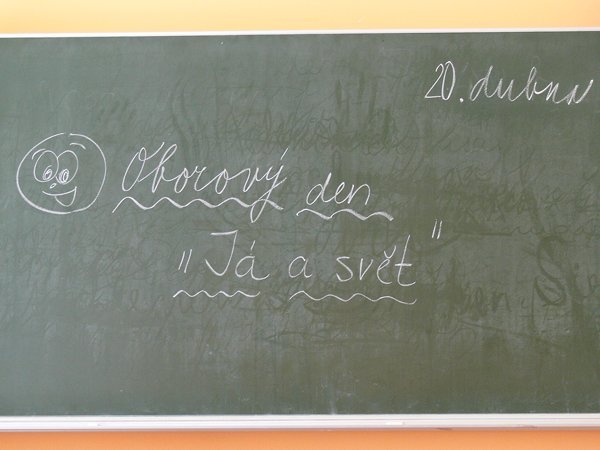 20. dubna
Oborový den
"Já a svět"